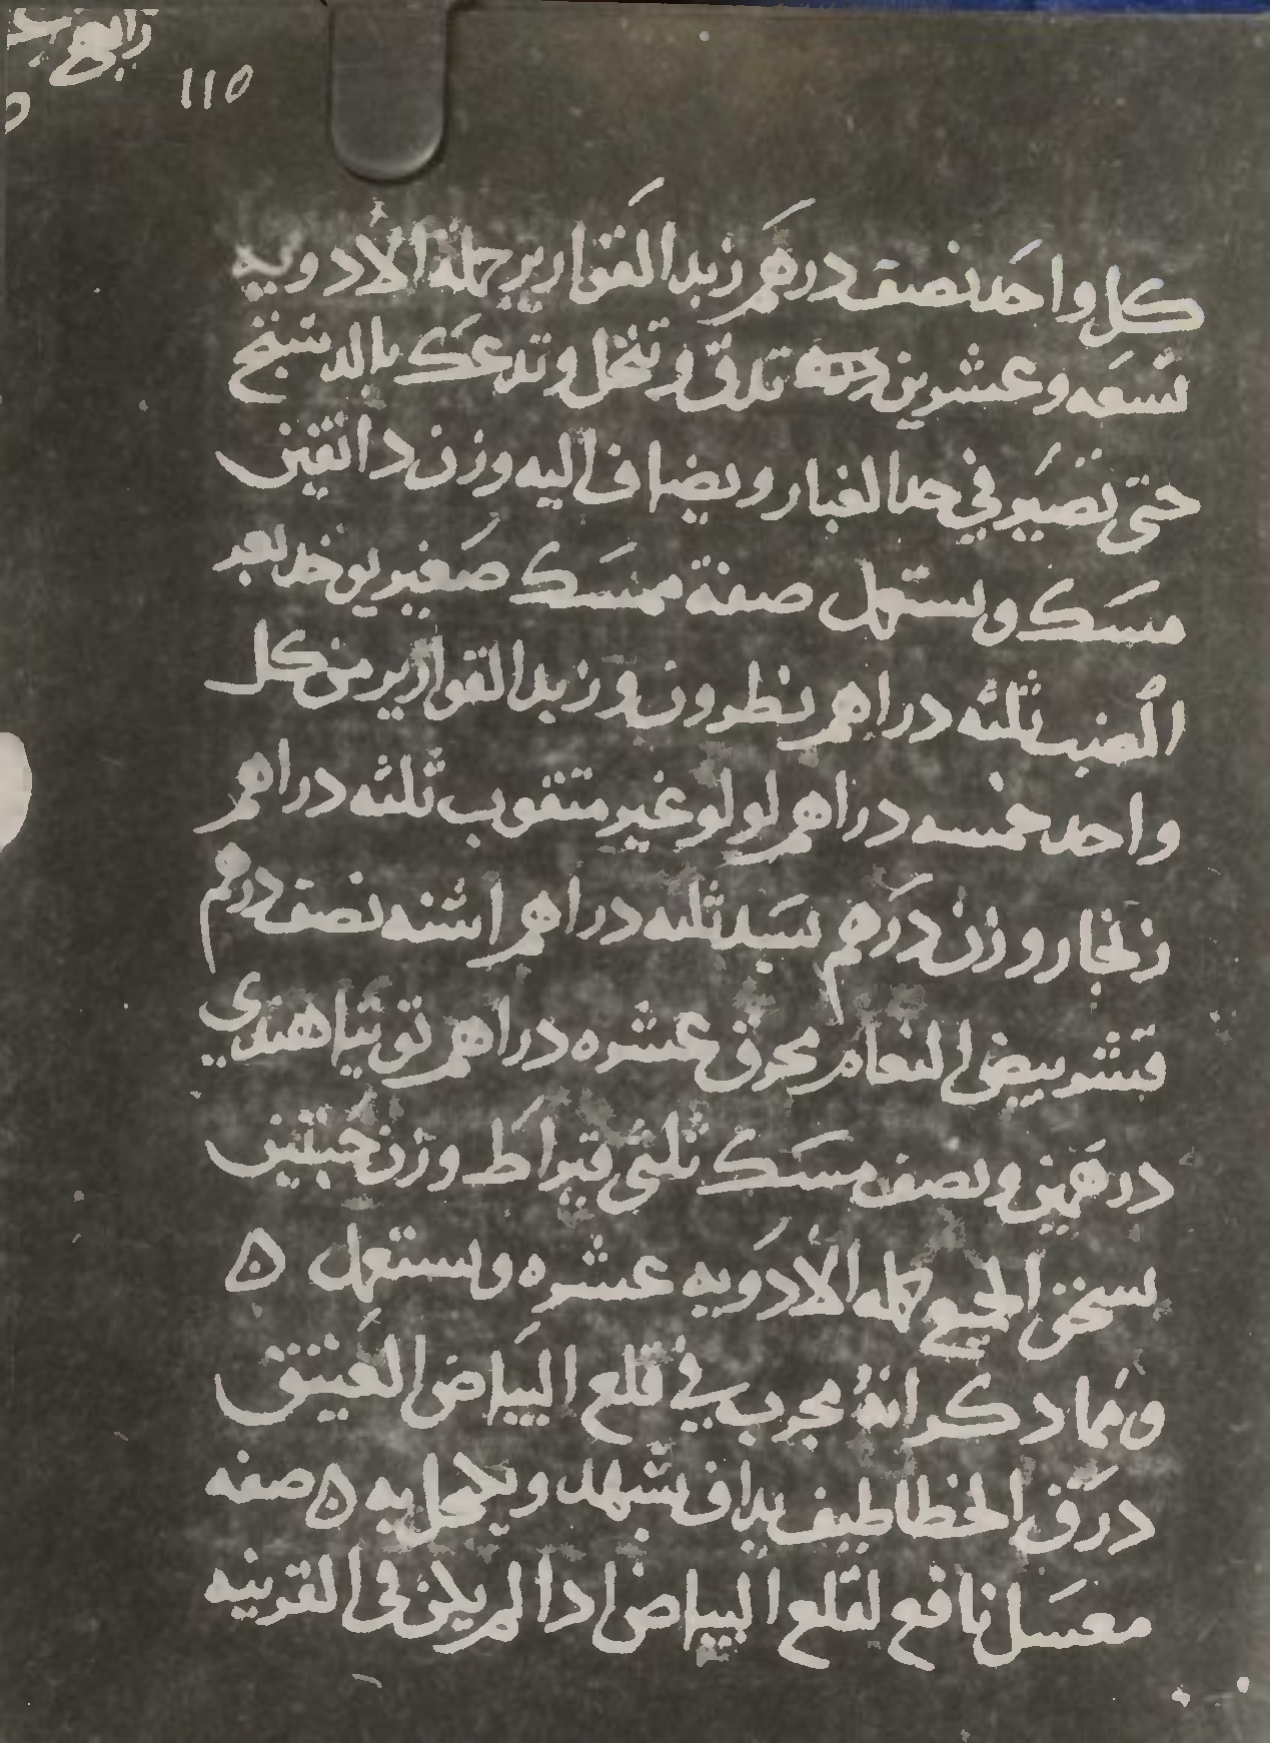 ١١٥
كل واحد نصف درهم زبد القوارير جملة الادويه
تسعه وعشرين درهم تدق وتنخل وتدعك بالدستج
حتى تصير في حد الغبار ويضاف اليه وزن دانقين
مسك ويستعمل صفة ممسك صغير يوخذ بعر
الضب ثلثه دراهم نطرون وزبد القوارير من كل
واحد خمسه دراهم لولو غير متقوب ثلثه دراهم
زنجار وزن درهم بسد ثلثه دراهم اشنه نصف درهم
قشر بيض النعام محرق عشره دراهم توتيا هندي
درهمين ونصف مسك ثلثي قيراط وزن حبتين
يسحق الجميع كله الادويه عشره ويستعمل ه
ومما دكر انه مجرب في قلع البياض العتيق
درق الخطاطيف يداف بشهد ويكحل به ه صفه
معسل نافع لقلع البياض ادا لم يكن في القرنيه